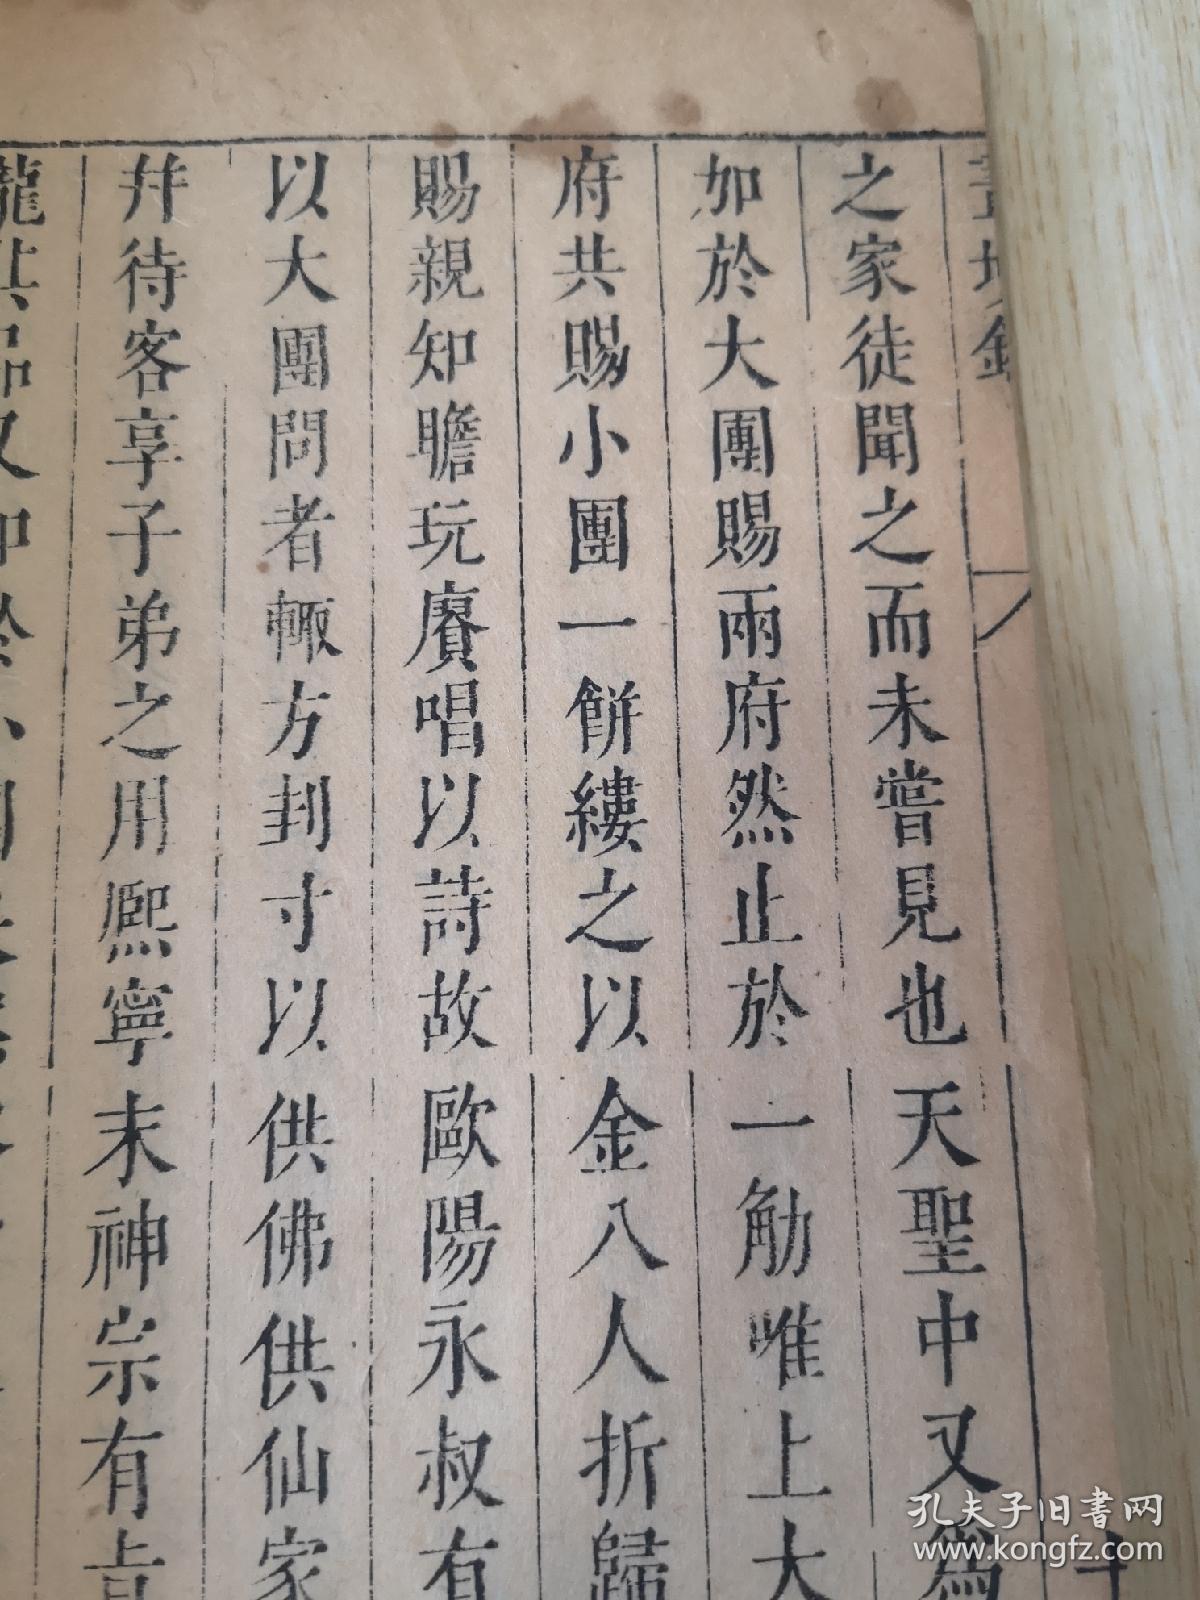 畫墁錄
之家徒聞之而未嘗見也天聖中又爲
加於大團賜兩府然止於一觔唯上大
府共賜小團一餅縷之以金八人折歸
賜親知瞻玩賡唱以詩故歐陽永叔有
以大團問者輙方刲寸以供佛供仙家
幷待客享子弟之用熈寧末神宗有旨
龍其品又加於小團
孔夫子旧书网
www.kongfz.com